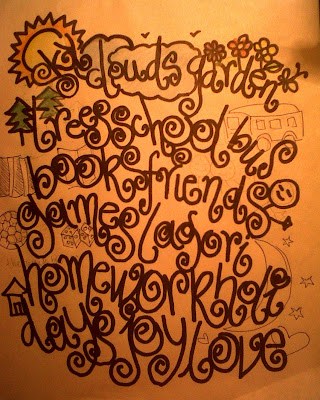 clouds garden
trees school bus
books friends
games lagori
homework holi
days joy love